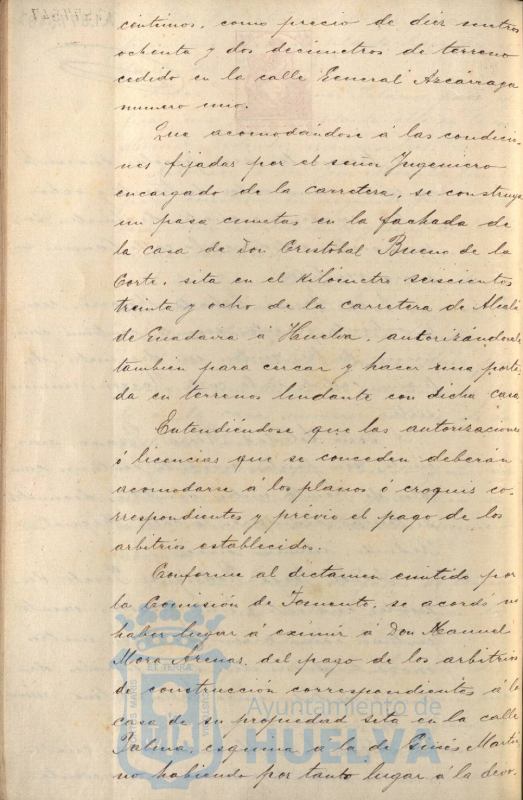 céntimos, como precio de diez metros
ochenta y dos decímetros de terreno
cedido en la calle General Azcárraga
numero uno.
Que acomodándose á las condicio-
nes fijadas por el señor Ingeniero
encargado de la carretera, se construya
un pasa cunetas en la fachada de
la casa de Don Cristobal Bueno de la
Corte, sita en el kilómetro seiscientos
treinta y ocho de la carretera de Alcalá
de Guadaira á Huelva, autorizándosele
tambien para cercar y hacer una porta-
da en terrenos lindante con dicha casa
Entendiéndose que las autorizaciones
ó licencias que se conceden deberán
acomodarse á los planos ó croquis co-
rrespondientes y prévio el pago de los
arbitrios establecidos.
Conforme al dictamen emitido por
la Comisión de Fomento, se acordó no
haber lugar á eximir á Don Manuel
Mora Arenas, del pago de los arbitrios
de construcción correspondientes á la
casa de su propiedad sita en la calle
Palma, esquina á la de Ginés Martín
no habiendo por tanto lugar á la devo-
Ayuntamiento de
HUELVA